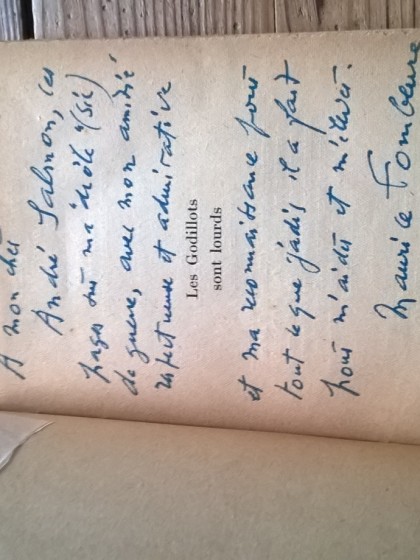 A mon cher
André Salmon, ces
pages sur ma "drôle" (sic)
de guerre, avec mon amitié
respectueuse et admirative
Les Godillots
sont lourds
et ma reconnaissance pour
tout ce que jadis il a fait
pour m'aider et m'élever.
Maurice Fombeure